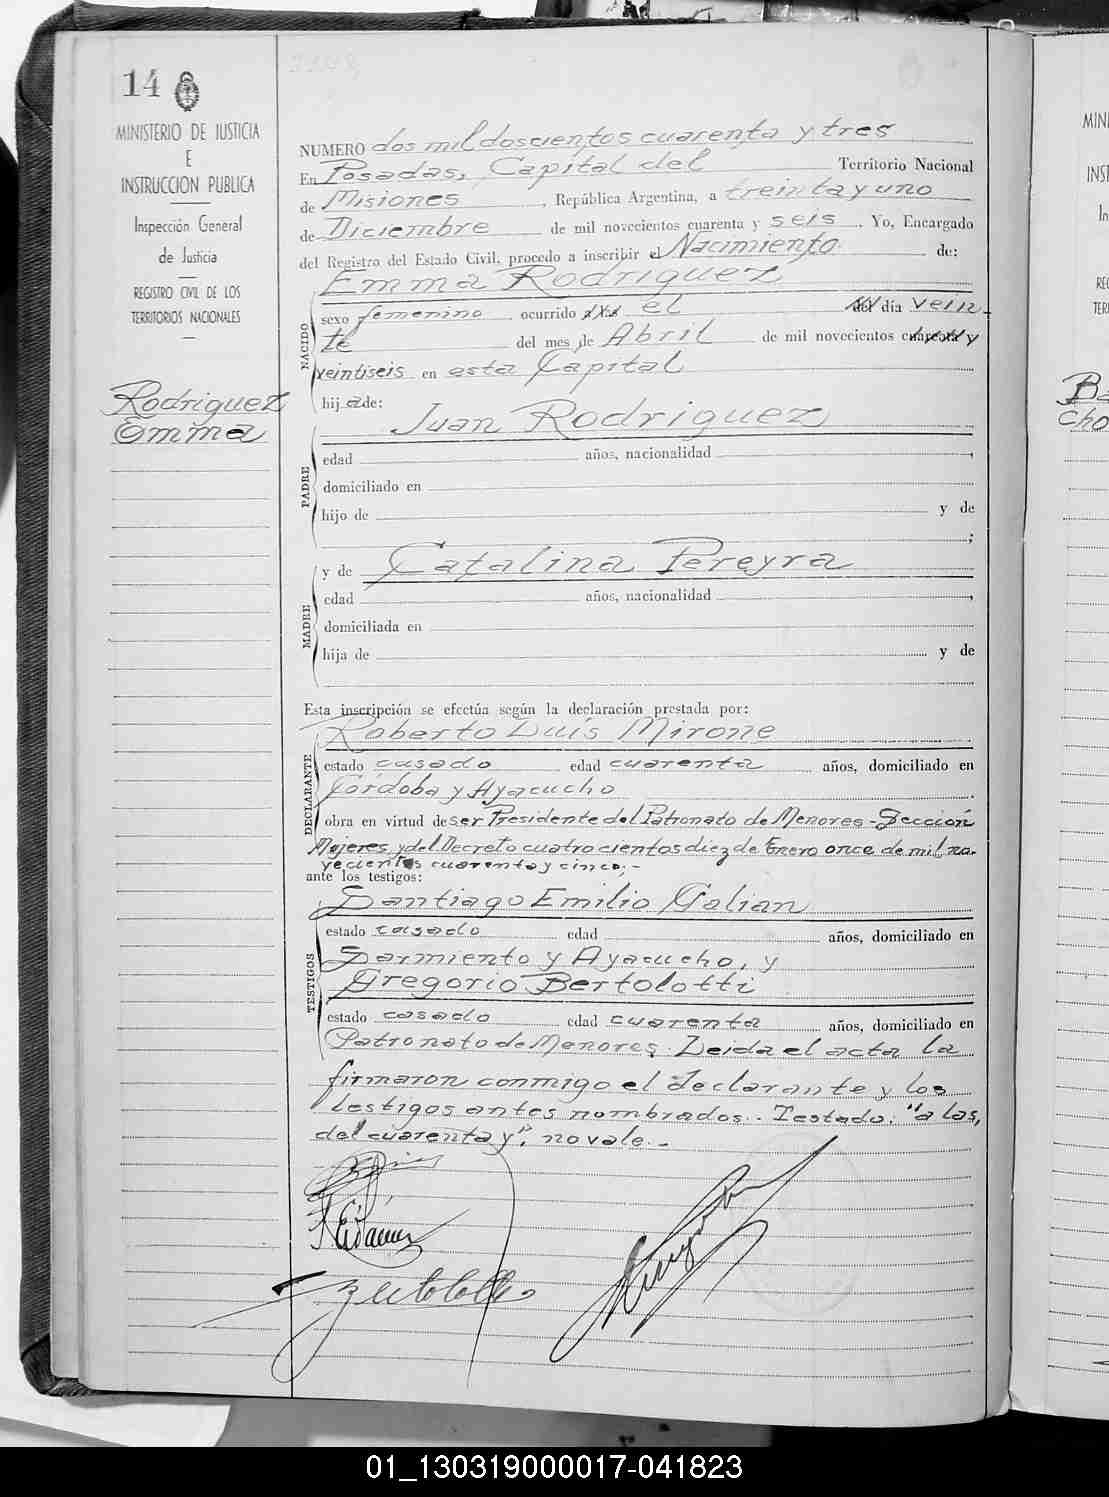 14
MINISTERIO DE JUSTICIA
E
INSTRUCCION PUBLICA
Inspección General
de Justicia
REGISTRO CIVIL DE LOS
TERRITORIOS NACIONALES
Rodriguez
Emma
NUMERO dos mil doscientos cuarenta y tres
En Posadas, Capital del Territorio Nacional
de Misiones, República Argentina, a treinta y uno
de Diciembre de mil novecientos cuarenta y seis. Yo, Encargado
del Registro del Estado Civil, procedo a inscribir el Nacimiento de:
NACIDO
Emma Rodriguez
sexo femenino ocurrido a las el del día vein-
te del mes de Abril de mil novecientos cuarenta y
veintiseis en esta Capital
hija de:
PADRE
Juan Rodriguez
edad años, nacionalidad ,
domiciliado en
hijo de y de
;
MADRE
y de Catalina Pereyra
edad años, nacionalidad ,
domiciliada en
hija de y de
Esta inscripción se efectúa según la declaración prestada por:
DECLARANTE
Roberto Luis Mirone
estado casado edad cuarenta años, domiciliado en
Córdoba y Ayacucho
obra en virtud de ser Presidente del Patronato de Menores-Sección
Mujeres y del Decreto cuatrocientos diez de Enero once de mil no-
vecientos cuarenta y cinco;-
ante los testigos:
TESTIGOS
Santiago Emilio Galian
estado casado edad años, domiciliado en
Sarmiento y Ayacucho, y
Gregorio Bertolotti
estado casado edad cuarenta años, domiciliado en
Patronato de Menores. Leida el acta la
firmaron conmigo el declarante y los
testigos antes nombrados. Testado: "a las,
del cuarenta y", no vale.-
MIN
INS
In
REG
TERR
Ba
cho
01_130319000017-041823